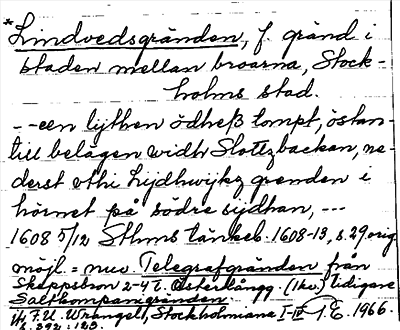 *Lindvedsgränden, f. gränd i
staden mellan broarna, Stock-
holms stad.
--een lijthen ödheß tompt, östan-
till belägen widh Slottzbackan, ne-
derst vthi Lijdhwijkz grenden i
hörnet på södre sijdhan, --
1608 5/12 Sthms tänkeb. 1608-13, s. 29 orig.
möjl. = nuv. Telegrafgränden från
Skeppsbron 2-4 t. Österlångg. (1 kv.) tidigare
Saltkompanigränden.
jfr F.U. Wrangel, Stockholmiana I-IV G.E. 1966.
s. 392, 123.